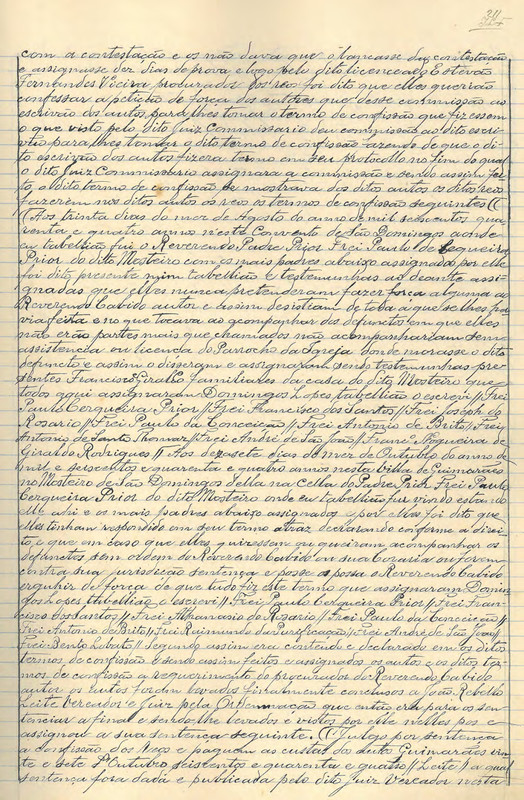 com a contestação e os não dava que o lançasse da contestação
e assignasse dez dias de prova e logo pelo dito licenceado Estevão
Fernandes Vieira procurador dos reos foi dito que elles querião
confessar a petição de força dos autores que desse commissão ao
escrivão dos autos para lhes tomar o termo de confissão que fizessem
o que visto pelo dito Juiz Commissario deu commissão ao dito escri-
vão para lhes tomar o dito termo de confissão fazendo de que o di-
to escrivão dos autos fizera termo em seu protocollo no fim do qual
o dito Juiz Commissario assignara a commissão e sendo assim fei-
to, o dito termo de confissão se mostrava dos ditos autos os ditos reos
fazerem nos ditos autos os reos os termos de confissão seguintes ((
((Aos trinta dias do mez de Agosto do anno de mil seiscentos qua-
renta e quatro annos neste Convento de São Domingos aonde
eu tabellião fui o Reverendo Padre Prior Frei Paulo de Cerqueira
Prior do dito Mosteiro com os mais padres abaixo assignados por elle
foi dito presente mim tabellião e testemunhas ao deante assi-
gnadas que elles nunca pretenderam fazer força alguma ao
Reverendo Cabido autor e assim desistiam de toda a que se lhes po-
via feita e no que tocava ao acompanhar dos defunctos em que elles
não erão partes mais que chamados não acompanhariam sem a
assistencia ou licença do Parrocho da Igreja donde morasse o dito
defuncto e assim o disseram e assignaram sendo testemunhas pre-
sentes Francisco Giraldo familiares da casa do dito Mosteiro que
todos aqui assignaram Domingos Lopes, tabellião o escrevi // Frei
Paulo Cerqueira, Prior // Frei Francisco dos Santos // Frei Joseph do
Rosario // Frei Paulo da Conceição // Frei Antonio de Brito // Frei
Antonio de Santo Thomaz // Frei André de São João // Franc.º Nogueira de
Giraldo Rodrigues // Aos dezasete dias do mez de Outubro do anno de
mil e seiscentos e quarenta e quatro annos nesta Villa de Guimarães
no Mosteiro de São Domingos della na Cella do Padre Prior Frei Paulo
Cerqueira Prior do dito Mosteiro onde eu tabellião fui vindo estando
elle ahi e os mais padres abaixo assignados e por elles foi dito que
elles tenham respondido em seu termo atraz declarando conforme a direi-
to, e que em caso que elles quizessem ou queiram acompanhar os
defunctos sem ordem do Reverendo Cabido ou sua Coraria ou forem
contra sua jurisdição sentença e posse os possa o Reverendo Cabido
erguhir de força de que tudo fiz este termo que assignaram Domin-
gos Lopes, tabellião o escrevi // Frei Paulo Cerqueira Prior // Frei Fran-
cisco dos Santos // Frei Athanasio do Rosario // Frei Paulo da Conceição //
Frei Antonio de Brito // Frei Raimundo da Purificação // Frei André de São João //
Frei Bento Lobato // Segundo assim era contendo e declarado em os ditos
termos de confissão e sendo assim feitos e assignados os autos e os ditos ter-
mos de confissão a requerimento do procurador do Reverendo Cabido
autor os autos foram levados finalmente conclusos a João Rebello
Leite Vereador e Juiz pela Ordennação que então era para os sen-
tenciar a final e sendo-lhe levados e vistos por elle nelles poz e
assignou a sua sentença seguinte. ((Julgo por sentença
a confissão dos Reos e paguem as custas dos autos Guimarães vin-
te e sete d'Outubro seiscentos e quarenta e quatro // Leite // a qual
sentença fora dada e publicada pelo dito Juiz Vereador nesta